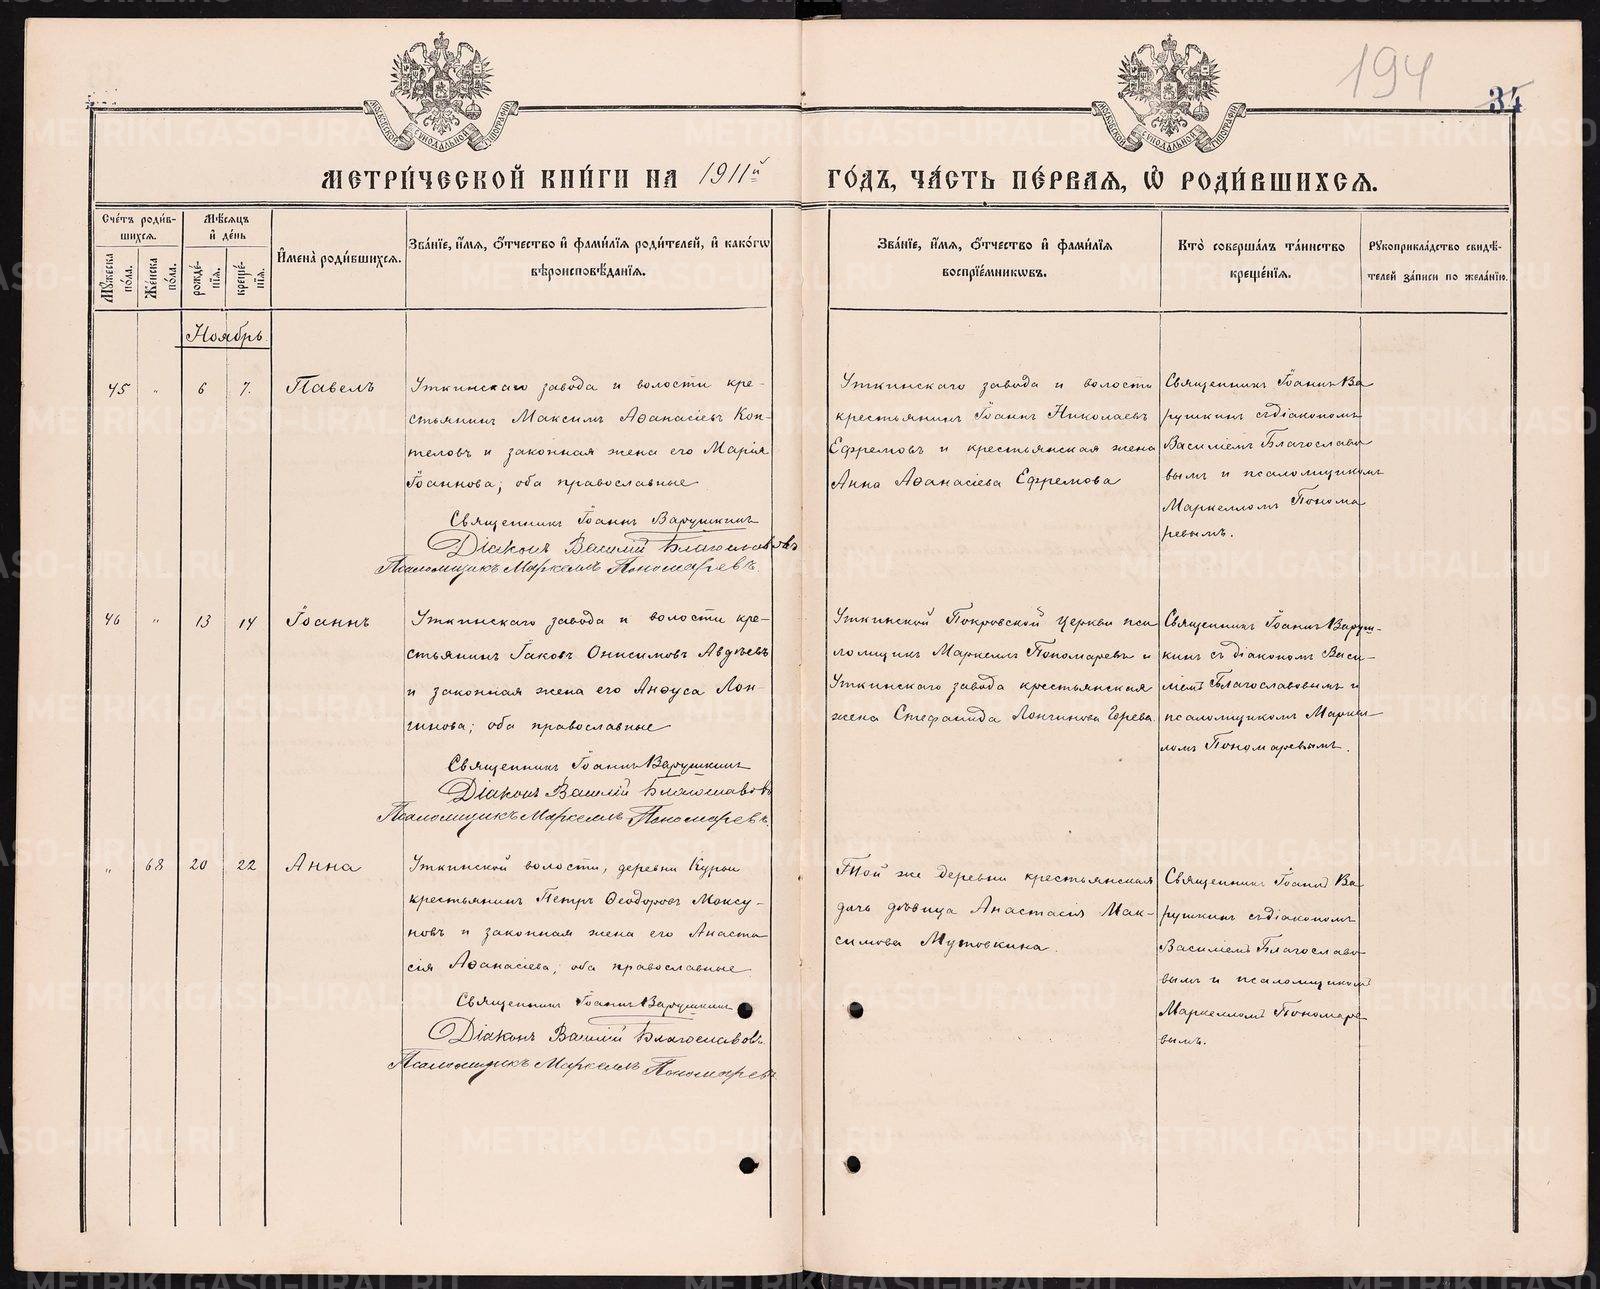 194
34
МОСКОВСКОЙ СѴНОДАЛЬНОЙ ТИПОГРАФІИ
МОСКОВСКОЙ СѴНОДАЛЬНОЙ ТИПОГРАФІИ
МЕТРИ́ЧЕСКОЙ КНИ́ГИ НА 1911й ГО́ДЪ, ЧА́СТЬ ПЕ́РВАЯ, Ѽ РОДИ́ВШИХСЯ.
Сче́тъ роди́в-
шихся.
Мꙋ́жеска по́ла.
Же́нска по́ла.
Мѣ́сяцъ
и҆ де́нь
рожде́-
нїѧ.
креще́-
нїѧ.
И҆мена̀ роди́вшихся.
Зва́нїе, и҆́мѧ, ѻ҆́тчество и҆ фами́лїѧ роди́телей, и҆ како́гѡ
вѣроисповѣ́данїѧ.
Зва́нїе, и҆́мѧ, ѻ҆́тчество и҆ фами́лїѧ
воспрїе́мникѡвъ.
Кто̀ соверша́лъ та́инство
креще́нїѧ.
Рꙋкоприкла́дство свидѣ́-
телей за́писи по жела́нїю.
Ноябрь
45 " 6 7. Павелъ
Уткинскаго завода и волости кре-
стьянинъ Максимъ Аѳанасіевъ Коп-
теловъ и законная жена его Марія
Іоаннова; оба православные
Священникъ Іоаннъ Варушкинъ
Діаконъ Василій Благославовъ
Псаломщикъ Маркеллъ Пономаревъ.
Уткинскаго завода и волости
крестьянинъ Іоаннъ Николаевъ
Ефремовъ и крестьянская жена
Анна Аѳанасіева Ефремова
Священникъ Іоаннъ Ва
рушкинъ съ діакономъ
Василіемъ Благославо
вымъ и псаломщикомъ
Маркелломъ Понома
ревымъ.
46 " 13 14 Іоаннъ
Уткинскаго завода и волости кре-
стьянинъ Іаковъ Онисимовъ Авдѣевъ
и законная жена его Анѳуса Лон-
гинова; оба православные
Священникъ Іоаннъ Варушкинъ
Діаконъ Василій Благославовъ
Псаломщикъ Маркеллъ Пономаревъ.
Уткинской Покровской церкви пса
ломщикъ Маркеллъ Пономаревъ и
Уткинскаго завода крестьянская
жена Стефанида Лонгинова
Священникъ Іоаннъ Варуш-
кинъ съ діакономъ Васи-
ліемъ Благославовымъ и
псаломщикомъ Маркел-
ломъ Пономаревымъ.
" 68 20 22 Анна
Уткинской волости, деревни Курьи
крестьянинъ Петръ Ѳеодоровъ Моксу-
новъ и законная жена его Анаста
сія Аѳанасіева; оба православные
Священникъ Іоаннъ Варушкинъ
Діаконъ Василій Благославовъ.
Псаломщикъ Маркеллъ Пономаревъ
Той же деревни крестьянская
дочь дѣвица Анастасія Мак-
симова Мутовкина.
Священникъ Іоаннъ Ва
рушкинъ съ діакономъ
Василіемъ Благославо
вымъ и псаломщикомъ
Маркелломъ Пономаре
вымъ.
METRIKI.GASO-URAL.RU